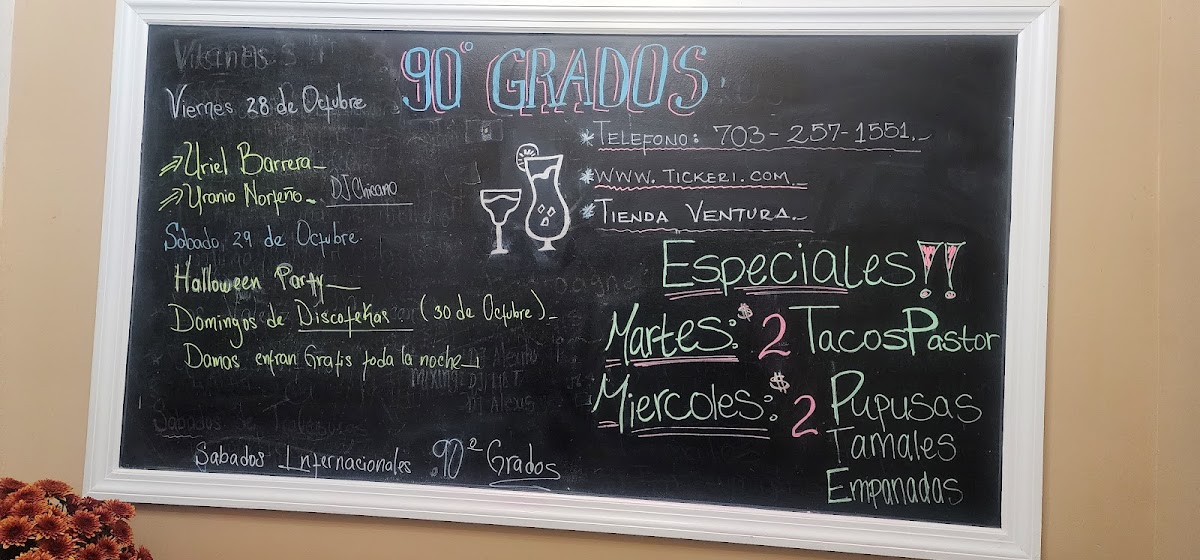 90° GRADOS
Viernes 28 de Octubre
Uriel Barrera
Uranio Norteño DJ Chicano
Sabado 29 de Octubre.
Halloween Party
Domingos de Discotekas (30 de Octubre)
Damas entran Gratis toda la noche
Sabados Internacionales 90° Grados
*TELEFONO: 703-257-1551.
*WWW.TICKERI.COM
*TIENDA VENTURA.
ESPECIALES!!
Martes: $2 Tacos Pastor
Miercoles: $2 Pupusas
Tamales
Empanadas